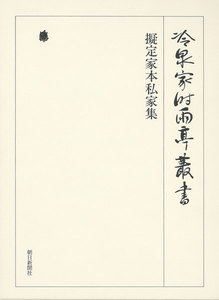 冷泉家時雨亭叢書
擬定家本私家集
朝日新聞社